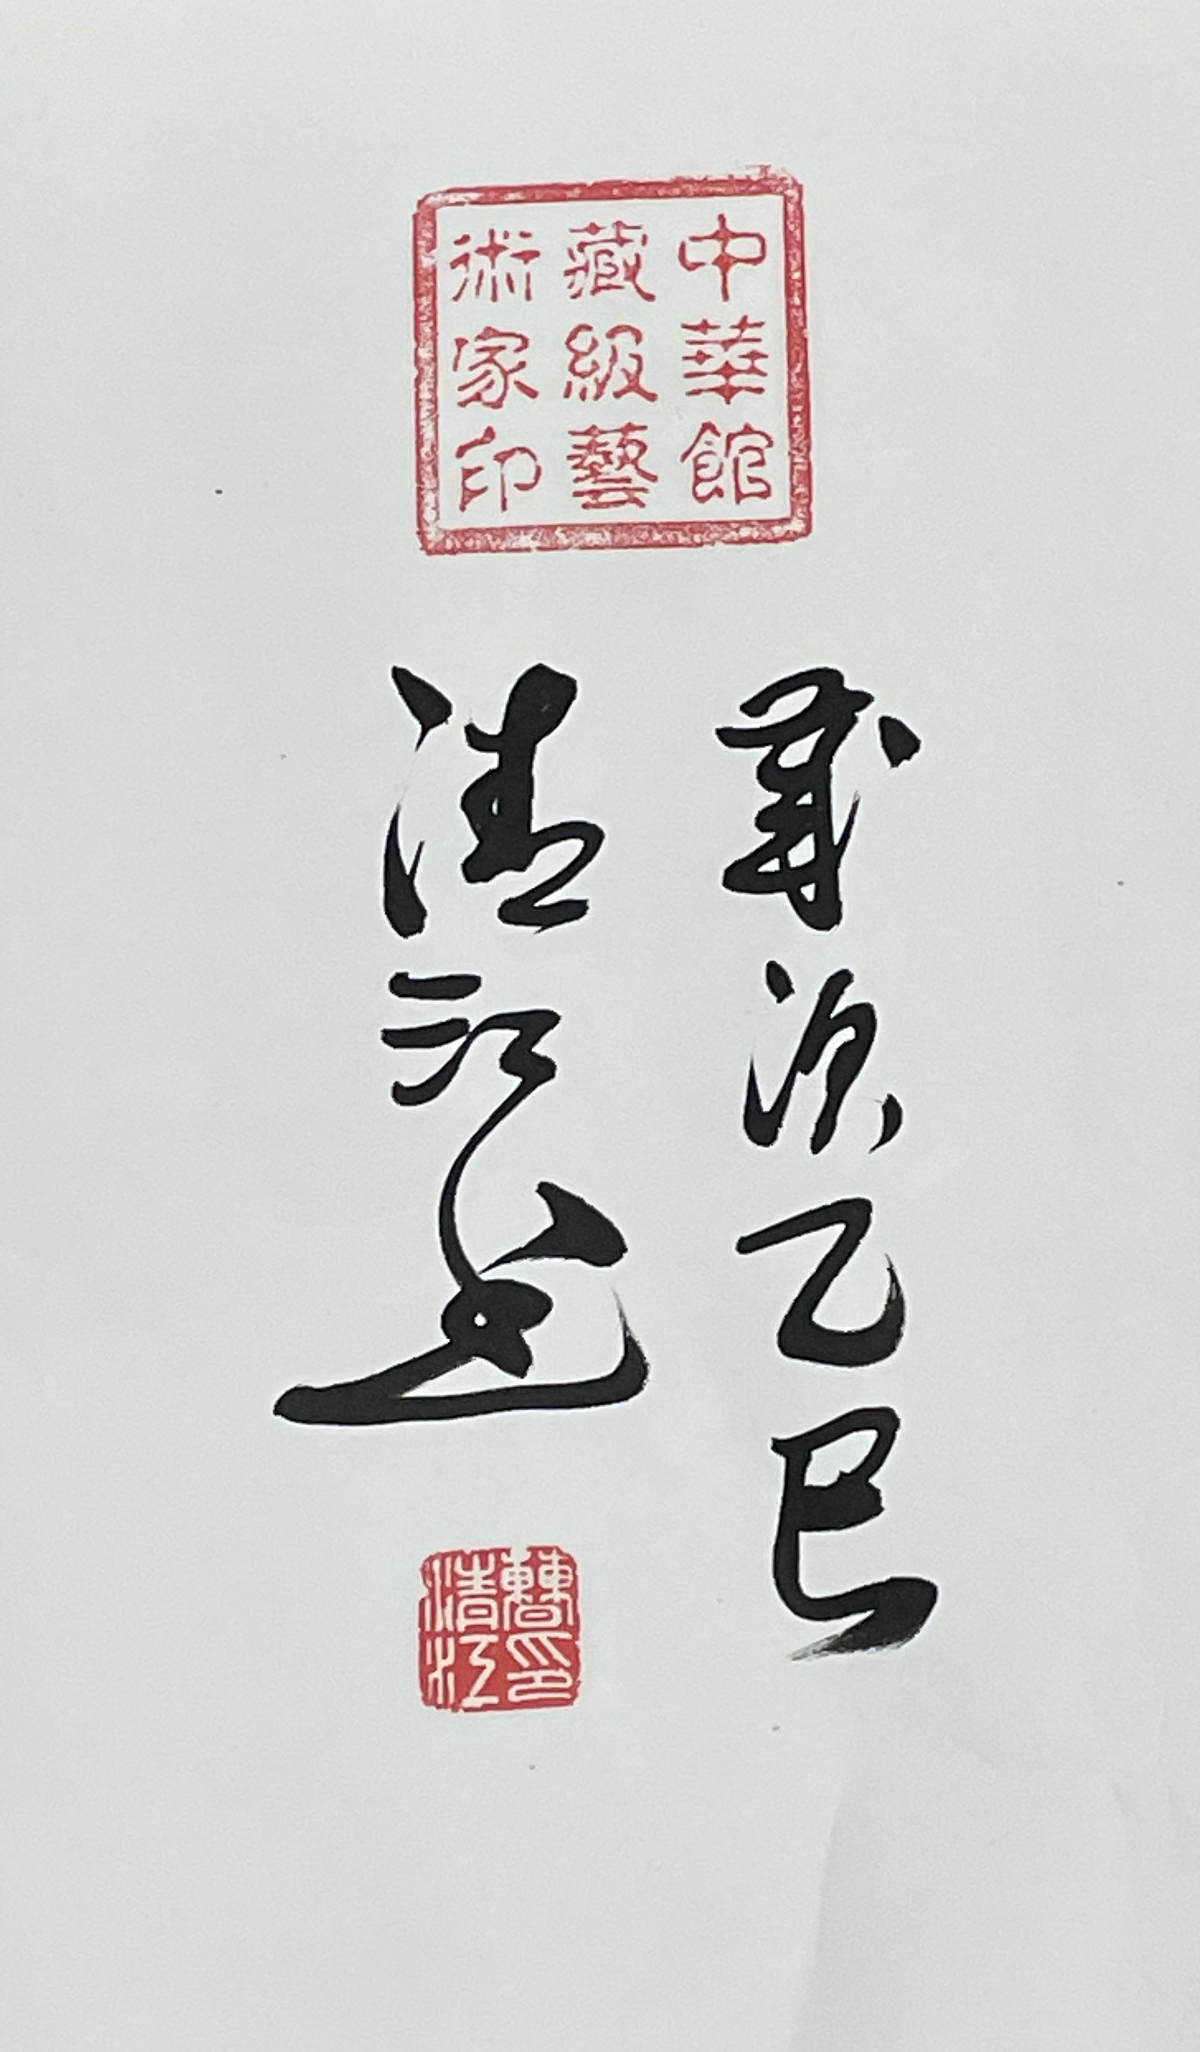 中華館
藏級藝
術家印
歲次乙巳
浩江書
曹印
浩江